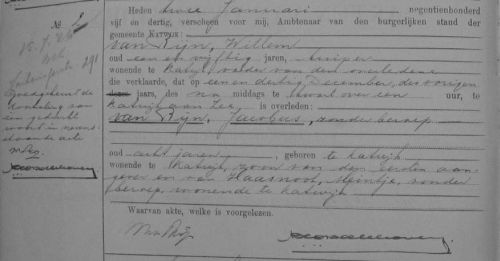 Heden twee Januari negentienhonderd
vijf en dertig, verscheen voor mij, Ambtenaar van den burgerlijken stand der
gemeente KATWIJK:
van Rijn, Willem
oud een en vijftig jaren, kuiper
wonende te Katwijk, vader van den overledene
die verklaarde, dat op een en dertig December, des vorigen
jaars, des na middags te kwart over een uur, te
Katwijk aan Zee, is overleden:
van Rijn, Jacobus, zonder beroep,
oud acht jaren, geboren te Katwijk
wonende te Katwijk, zoon van den eersten aan-
gever en van Haasnoot, Steintje, zonder
beroep, wonende te Katwijk
Waarvan akte, welke is voorgelezen.
W van Rijn
No. 2
Goedgekeurd de
doorhaling van
een gedrukt
woord in neven-
staande akte